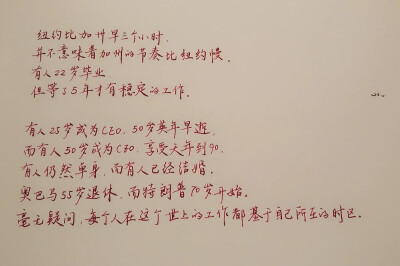 纽约比加州早三个小时.
并不意味着加州的节奏比纽约慢.
有人22岁毕业
但等了5年才有稳定的工作.
有人25岁成为CEO, 50岁英年早逝.
而有人50岁成为CEO, 享受天年到90.
有人仍然单身, 而有人已经结婚.
奥巴马55岁退休, 而特朗普70岁开始.
毫无疑问, 每个人在这个世上的工作都基于自己所在的时区.